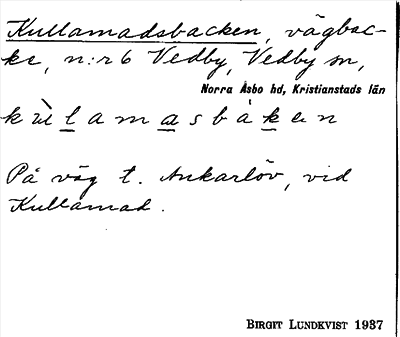 Kullamadsbacken, vägbac-
ke, n:r 6 Vedby, Vedby sn,
Norra Åsbo hd, Kristianstads län
kùlamasbákən
På väg t. Ankarlöv, vid
Kullamad.
BIRGIT LUNDKVIST 1937